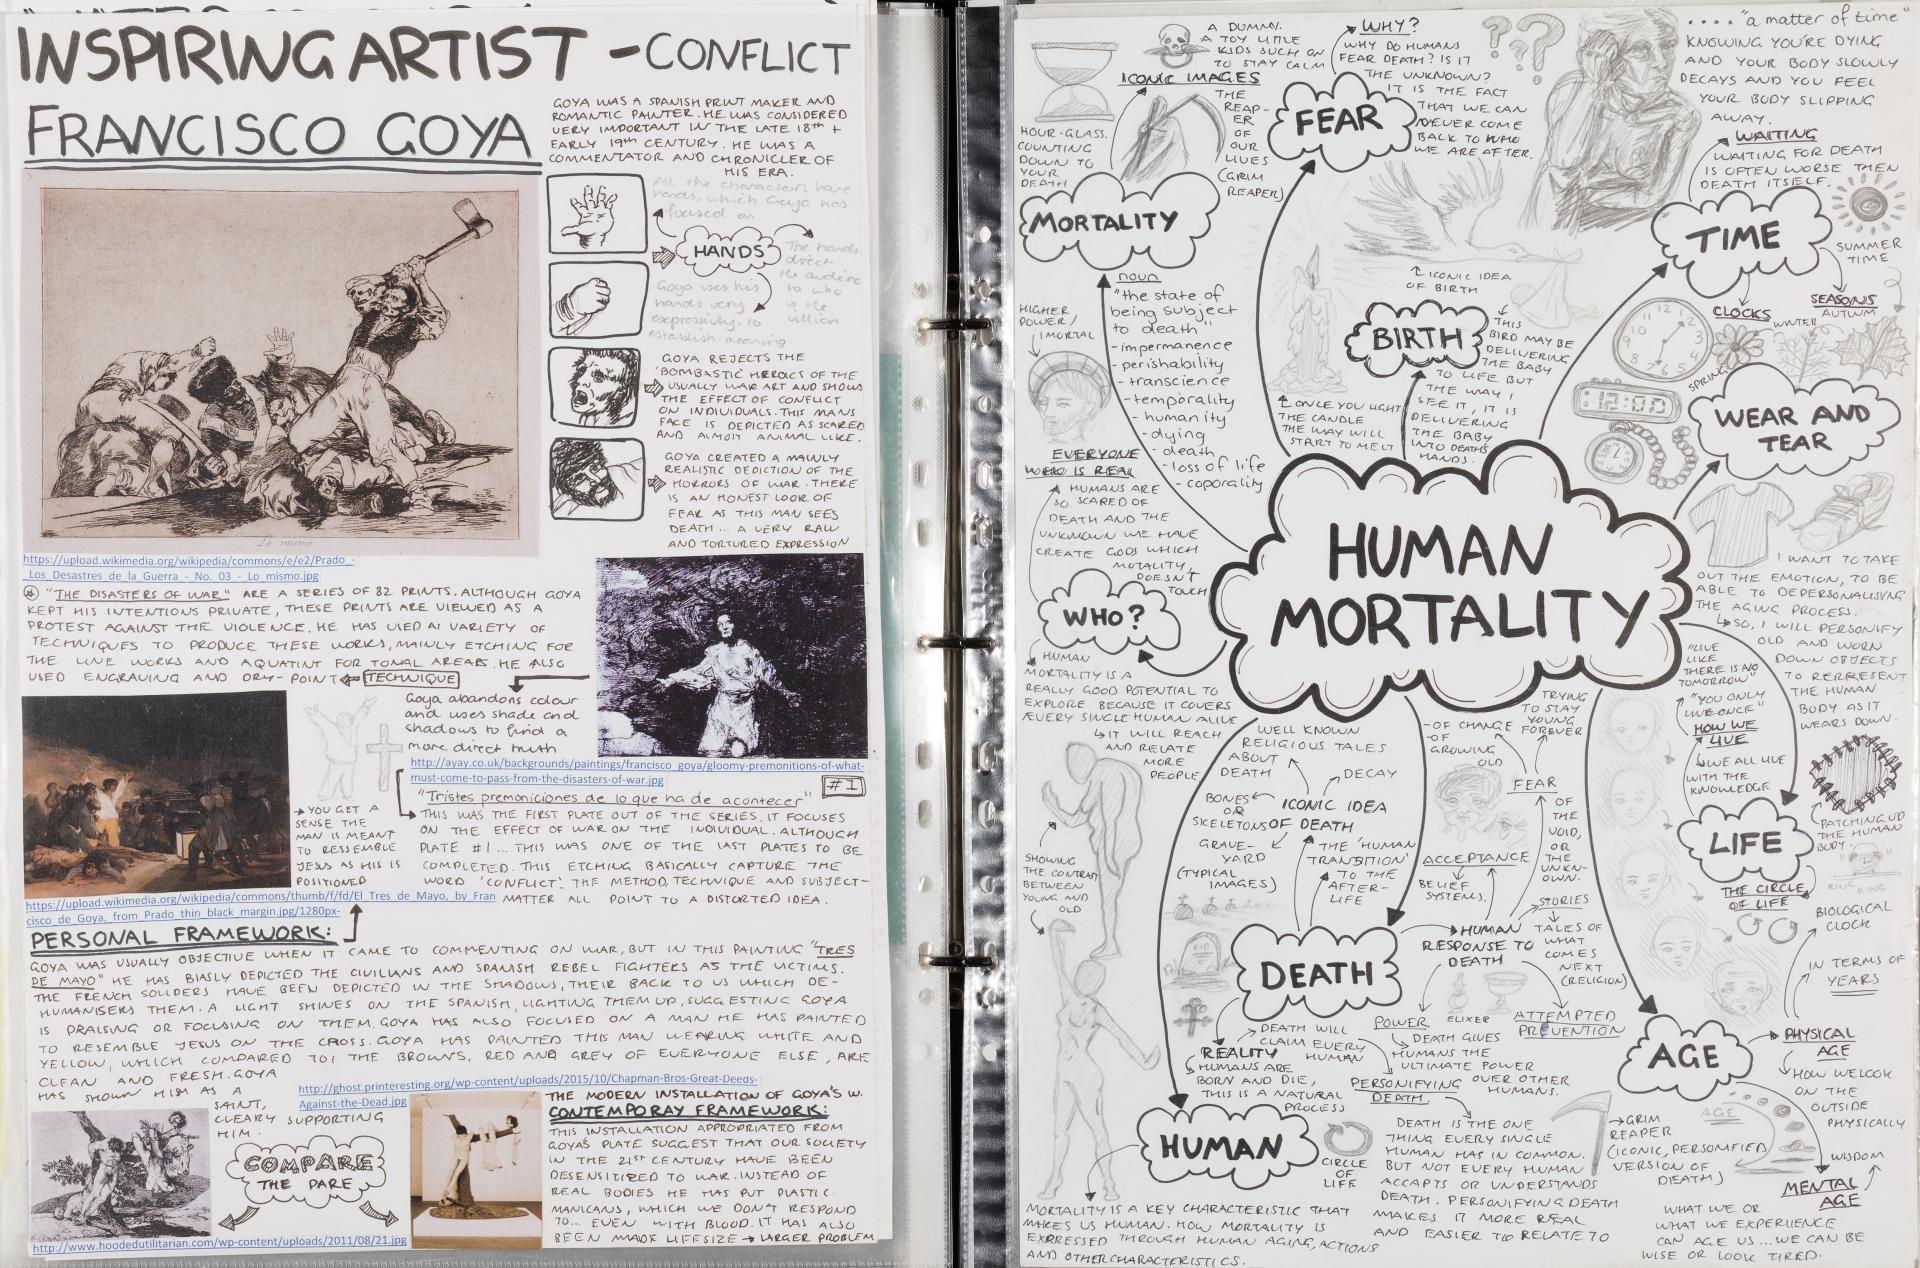 INSPIRING ARTIST - CONFLICT
FRANCISCO GOYA
GOYA WAS A SPANISH PRINT MAKER AND
ROMANTIC PAINTER. HE WAS CONSIDERED
VERY IMPORTANT IN THE LATE 18th +
EARLY 19th CENTURY. HE WAS A
COMMENTATOR AND CHRONICLER OF
HIS ERA.
All the characters have
hands, which Goya has
focused on
HANDS
The hands
direct
the audience
to who
is the
villian
Goya uses his
hands very
expressivly, to
establish meaning
GOYA REJECTS THE
'BOMBASTIC HEROICS OF THE
USUALLY WAR ART AND SHOWS
THE EFFECT OF CONFLICT
ON INDIVIDUALS. THIS MANS
FACE IS DEPICTED AS SCARED
AND ALMOST ANIMAL LIKE.
GOYA CREATED A MAINLY
REALISTIC DEPICTION OF THE
HORRORS OF WAR. THERE
IS AN HONEST LOOK OF
FEAR AS THIS MAN SEES
DEATH... A VERY RAW
AND TORTURED EXPRESSION
Lo mismo
https://upload.wikimedia.org/wikipedia/commons/e/e2/Prado_-
_Los_Desastres_de_la_Guerra_-_No._03_-_Lo_mismo.jpg
"THE DISASTERS OF WAR" ARE A SERIES OF 82 PRINTS. ALTHOUGH GOYA
KEPT HIS INTENTIONS PRIVATE, THESE PRINTS ARE VIEWED AS A
PROTEST AGAINST THE VIOLENCE. HE HAS USED A VARIETY OF
TECHNIQUES TO PRODUCE THESE WORKS, MAINLY ETCHING FOR
THE LINE WORKS AND AQUATINT FOR TONAL AREARS. HE ALSO
USED ENGRAVING AND DRY-POINT TECHNIQUE
Goya abandons colour
and uses shade and
shadows to find a
more direct truth
http://ayay.co.uk/backgrounds/paintings/francisco_goya/gloomy-premonitions-of-what-
must-come-to-pass-from-the-disasters-of-war.jpg
#1
"Tristes premoniciones de lo que ha de acontecer"
THIS WAS THE FIRST PLATE OUT OF THE SERIES. IT FOCUSES
ON THE EFFECT OF WAR ON THE INDIVIDUAL. ALTHOUGH
PLATE #1... THIS WAS ONE OF THE LAST PLATES TO BE
COMPLETED. THIS ETCHING BASICALLY CAPTURE THE
WORD 'CONFLICT'. THE METHOD, TECHNIQUE AND SUBJECT-
MATTER ALL POINT TO A DISTORTED IDEA.
YOU GET A
SENSE THE
MAN IS MEANT
TO RESSEMBLE
JESUS AS HIS IS
POSITIONED
https://upload.wikimedia.org/wikipedia/commons/thumb/f/fd/El_Tres_de_Mayo,_by_Fran
cisco_de_Goya,_from_Prado_thin_black_margin.jpg/1280px-
PERSONAL FRAMEWORK:
GOYA WAS USUALLY OBJECTIVE WHEN IT CAME TO COMMENTING ON WAR, BUT IN THIS PAINTING "TRES
DE MAYO" HE HAS BIASLY DEPICTED THE CIVILIANS AND SPANISH REBEL FIGHTERS AS THE VICTIMS.
THE FRENCH SOLIDERS HAVE BEEN DEPICTED IN THE SHADOWS, THEIR BACK TO US WHICH DE-
HUMANISERS THEM. A LIGHT SHINES ON THE SPANISH, LIGHTING THEM UP, SUGGESTING GOYA
IS PRAISING OR FOCUSING ON THEM. GOYA HAS ALSO FOCUSED ON A MAN HE HAS PAINTED
TO RESEMBLE JESUS ON THE CROSS. GOYA HAS PAINTED THIS MAN WEARING WHITE AND
YELLOW, WHICH COMPARED TO THE BROWNS, RED AND GREY OF EVERYONE ELSE, ARE
CLEAN AND FRESH. GOYA
HAS SHOWN HIM AS A
SAINT,
CLEARY SUPPORTING
HIM.
http://ghost.printeresting.org/wp-content/uploads/2015/10/Chapman-Bros-Great-Deeds-
Against-the-Dead.jpg
COMPARE
THE PARE
http://www.hoodedutilitarian.com/wp-content/uploads/2011/08/21.jpg
THE MODERN INSTALLATION OF GOYA'S W.
CONTEMPORAY FRAMEWORK:
THIS INSTALLATION APPROPRIATED FROM
GOYA'S PLATE SUGGEST THAT OUR SOCIETY
IN THE 21st CENTURY HAVE BEEN
DESENSITIZED TO WAR. INSTEAD OF
REAL BODIES HE HAS PUT PLASTIC
MANICANS, WHICH WE DON'T RESPOND
TO... EVEN WITH BLOOD. IT HAS ALSO
BEEN MADE LIFESIZE → LARGER PROBLEM
HUMAN
MORTALITY
HOUR-GLASS.
COUNTING
DOWN TO
YOUR
DEATH
A DUMMY.
A TOY LITTLE
KIDS SUCH ON
TO STAY CALM
ICONIC IMAGES
THE
REAP-
ER
OF
OUR
LIVES
(GRIM
REAPER)
MORTALITY
noun
"the state of
being subject
to death"
- impermanence
- perishability
- transcience
- temporality
- humanity
- dying
- death
- loss of life
- coporality
WHY?
WHY DO HUMANS
FEAR DEATH? IS IT
THE UNKNOWN?
IT IS THE FACT
THAT WE CAN
NEVER COME
BACK TO WHO
WE ARE AFTER.
FEAR
ICONIC IDEA
OF BIRTH
BIRTH
THIS
BIRD MAY BE
DELIVERING
THE BABY
TO LIFE BUT
THE WAY I
SEE IT, IT IS
DELIVERING
THE BABY
INTO DEATHS
HANDS.
ONCE YOU LIGHT
THE CANDLE
THE WAY WILL
START TO MELT
...."a matter of time"
KNOWING YOU'RE DYING
AND YOUR BODY SLOWLY
DECAYS AND YOU FEEL
YOUR BODY SLIPPING
AWAY.
WAITING
WAITING FOR DEATH
IS OFTEN WORSE THEN
DEATH ITSELF.
TIME
SUMMER
TIME
CLOCKS
SEASONS
AUTUMN
WINTER
SPRING
12:00
WEAR AND
TEAR
I WANT TO TAKE
OUT THE EMOTION, TO BE
ABLE TO DEPERSONALISING
THE AGING PROCESS.
SO, I WILL PERSONIFY
OLD AND WORN
DOWN OBJECTS
TO REPRESENT
THE HUMAN
BODY AS IT
WEARS DOWN.
HIGHER
POWER/
IMORTAL
EVERYONE
WHO IS REAL
HUMANS ARE
SO SCARED OF
DEATH AND THE
UNKNOWN WE HAVE
CREATE GODS WHICH
MOTALITY
DOESN'T
TOUCH
WHO?
HUMAN
MORTALITY IS A
REALLY GOOD POTENTIAL TO
EXPLORE BECAUSE IT COVERS
EVERY SINGLE HUMAN ALIVE
IT WILL REACH
AND RELATE
MORE
PEOPLE
SHOWING
THE CONTRAST
BETWEEN
YOUNG AND
OLD
WELL KNOWN
RELIGIOUS TALES
ABOUT
DEATH
DECAY
BONES
OR
SKELETONS
ICONIC IDEA
OF DEATH
GRAVE-
YARD
(TYPICAL
IMAGES)
THE 'HUMAN
TRANSITION'
TO THE
AFTER-
LIFE
DEATH
REALITY
HUMANS ARE
BORN AND DIE,
THIS IS A NATURAL
PROCESS
DEATH WILL
CLAIM EVERY
HUMAN
- OF CHANGE
- OF
GROWING
OLD
TRYING
TO STAY
YOUNG
FOREVER
FEAR
OF
THE
VOID,
OR
THE
UNKN-
OWN.
ACCEPTANCE
BELIEF
SYSTEMS.
STORIES
TALES OF
WHAT
COMES
NEXT
(RELIGION)
HUMAN
RESPONSE TO
DEATH
ELIXER
ATTEMPTED
PREVENTION
POWER
DEATH GIVES
HUMANS THE
ULTIMATE POWER
OVER OTHER
HUMANS.
PERSONIFYING
DEATH
DEATH IS THE ONE
THING EVERY SINGLE
HUMAN HAS IN COMMON.
BUT NOT EVERY HUMAN
ACCAPTS OR UNDERSTANDS
DEATH. PERSONIFYING DEATH
MAKES IT MORE REAL
AND EASIER TO RELATE TO
GRIM
REAPER
(ICONIC, PERSOMFIED
VERSION OF
DEATH)
HUMAN
CIRCLE
OF
LIFE
MORTALITY IS A KEY CHARACTERISTIC THAT
MAKES US HUMAN. HOW MORTALITY IS
EXPRESSED THROUGH HUMAN AGING, ACTIONS
AND OTHER CHARACTERISTICS.
"LIVE
LIKE
THERE IS NO
TOMORROW"
"YOU ONLY
LIVE ONCE"
HOW WE
LIVE
WE ALL LIVE
WITH THE
KNOWLEDGE
LIFE
PATCHING UP
THE HUMAN
BODY.
RING RING
THE CIRCLE
OF LIFE
BIOLOGICAL
CLOCK
IN TERMS OF
YEARS
AGE
PHYSICAL
AGE
HOW WE LOOK
ON THE
OUTSIDE
PHYSICALLY
AGE
WISDOM
MENTAL
AGE
WHAT WE OR
WHAT WE EXPERIENCE
CAN AGE US... WE CAN BE
WISE OR LOOK TIRED.